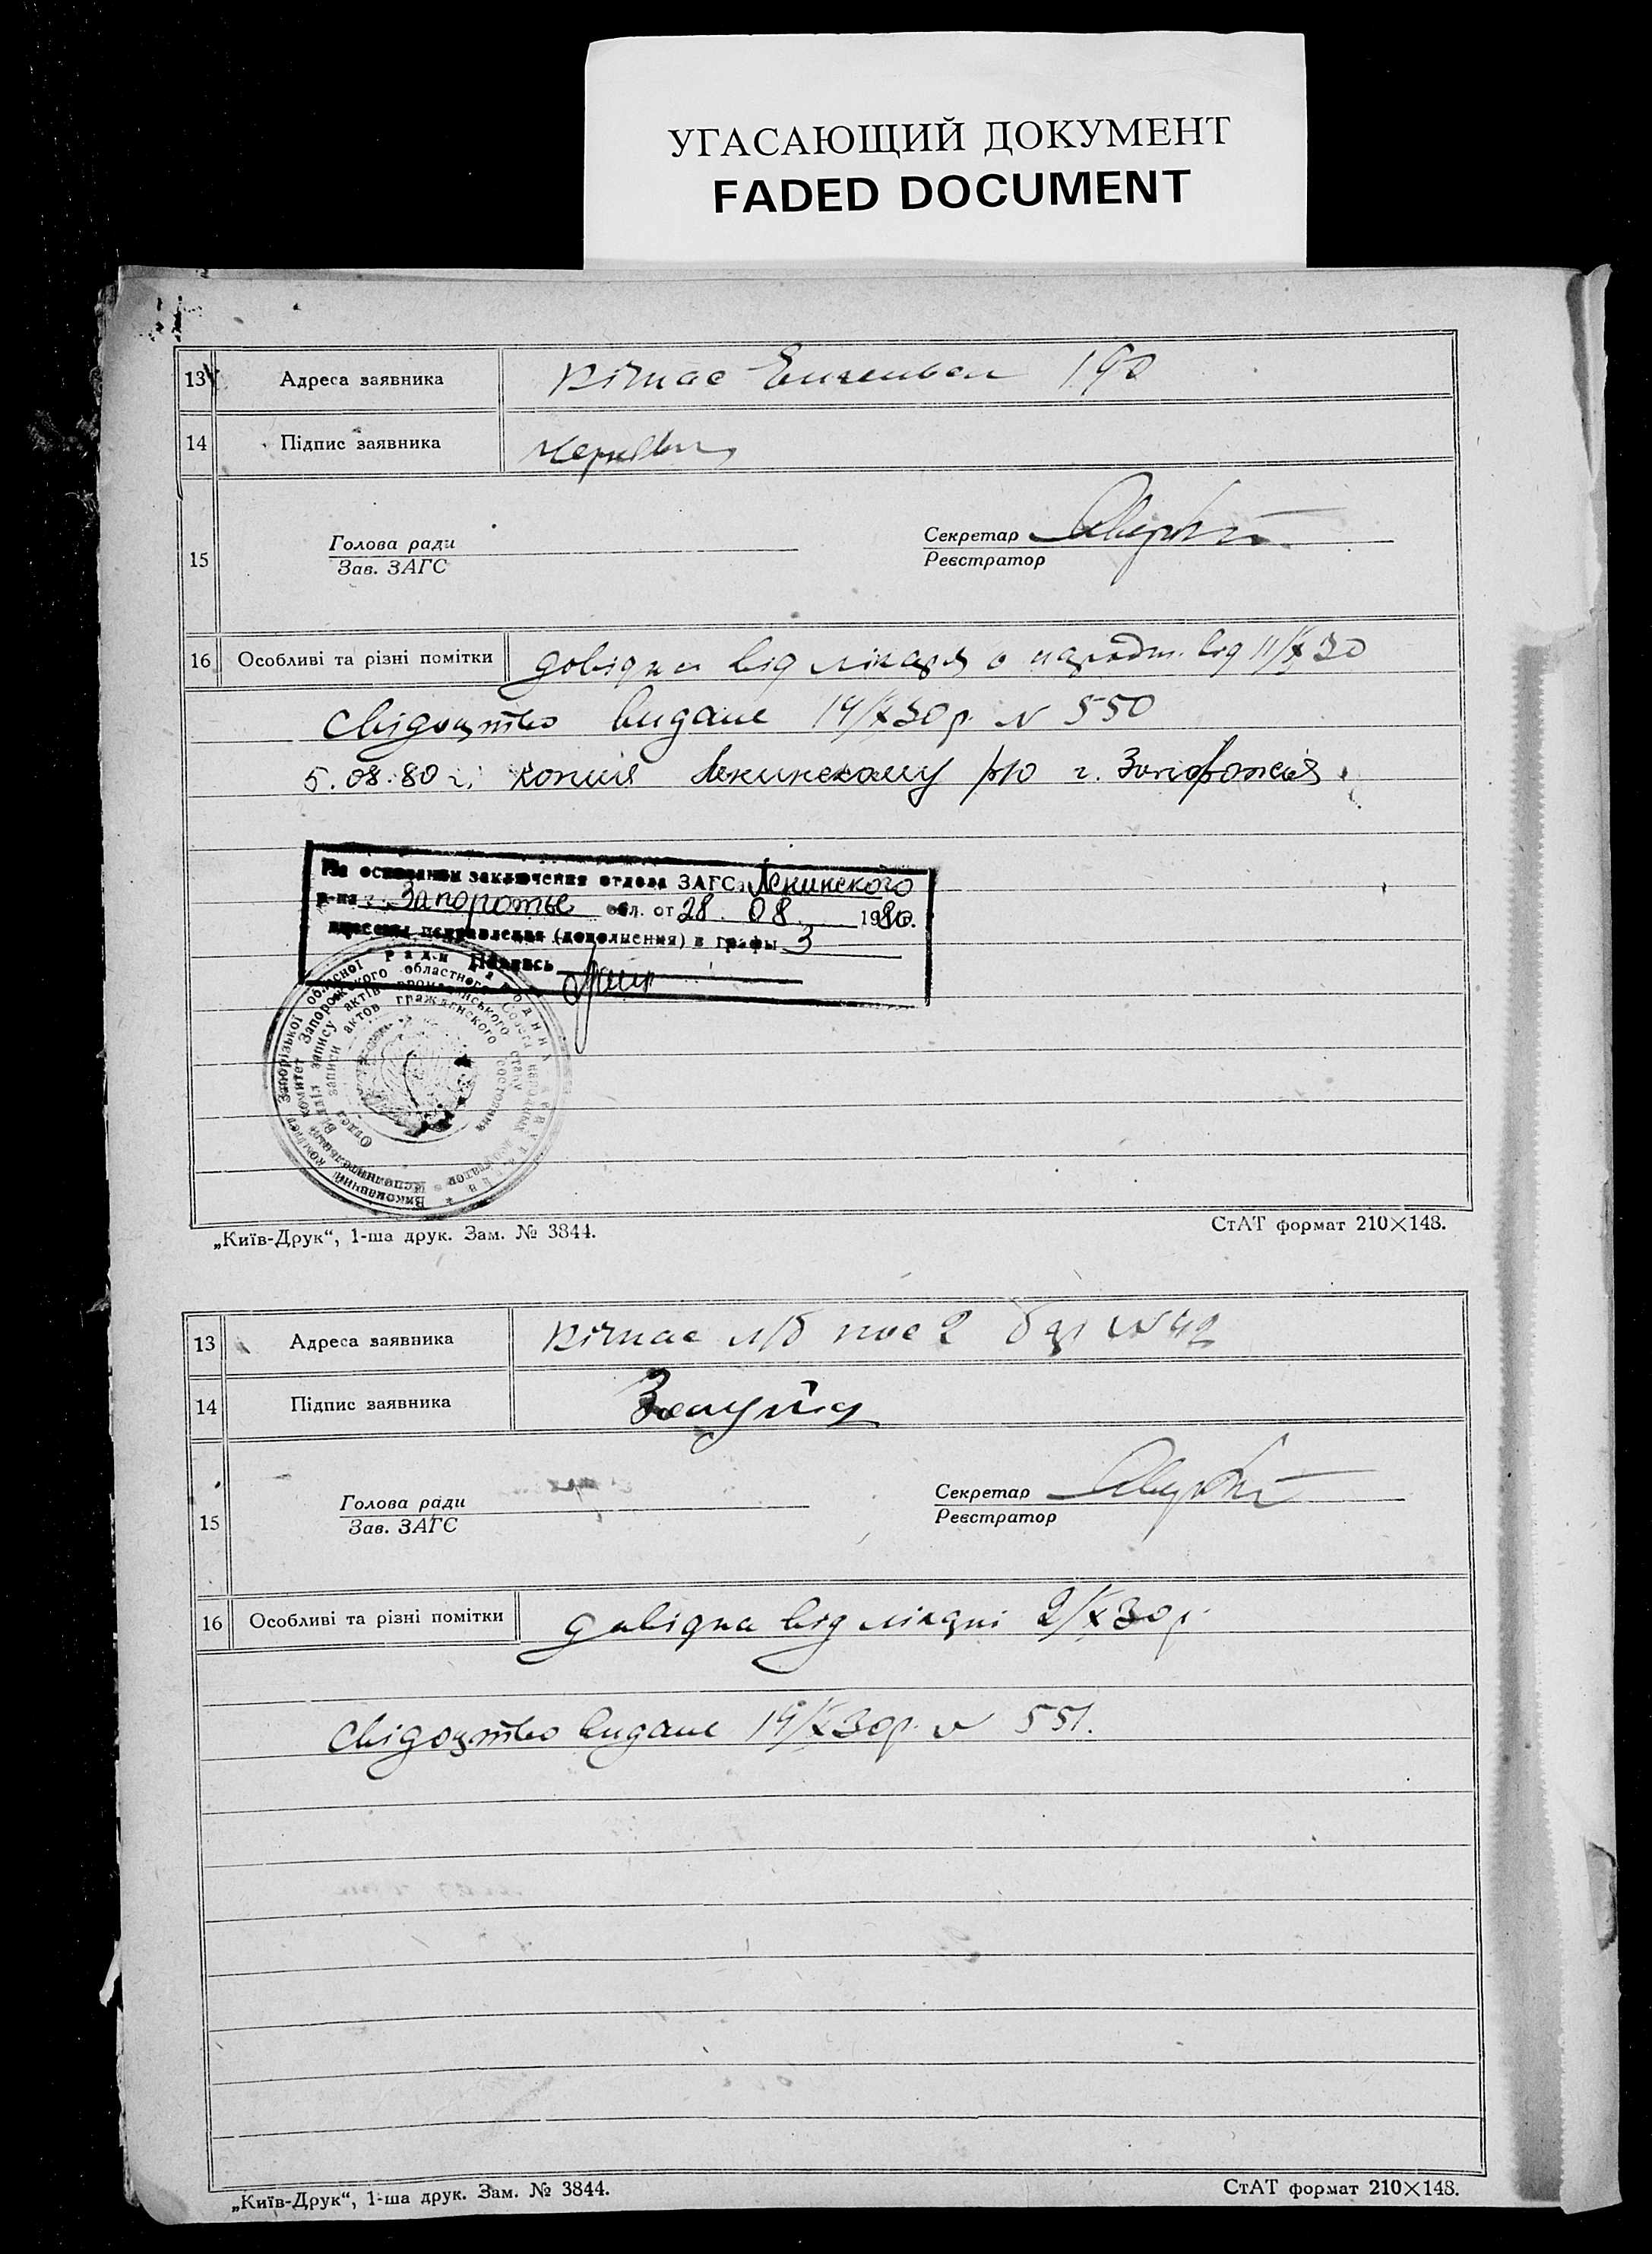 УГАСАЮЩИЙ ДОКУМЕНТ
FADED DOCUMENT
13 Адреса заявника Кічкас 190
14 Підпис заявника
Голова ради Секретар
15 Зав. ЗАГС Реєстратор
16 Особливі та різні помітки довідка від лікаря о народж. від 11/X 30
свідоцтво видане 14/X 30 р. N 550
5.08.80 г. копия Ленинскому р/ю г. Запорожья
На основании заключения отдела ЗАГСа Ленинского
р-на Запорожье обл. от 28. 08. 1980.
внесены исправления (дополнения) в графы 3
Подпись
Виконавчий комітет Запорізької обласної Ради народних депутатів
Исполнительный комитет Запорожского областного Совета народных депутатов
Відділ запису актів громадянського стану
Отдел записи актов гражданского состояния
„Київ-Друк“, 1-ша друк. Зам. № 3844. СтАТ формат 210×148.
13 Адреса заявника Кічкас л/б пос 2 бар N 42
14 Підпис заявника
Голова ради Секретар
15 Зав. ЗАГС Реєстратор
16 Особливі та різні помітки довідка від лікарні 2/X 30 р.
свідоцтво видане 14/X 30 р. N 551.
„Київ-Друк“, 1-ша друк. Зам. № 3844. СтАТ формат 210×148.